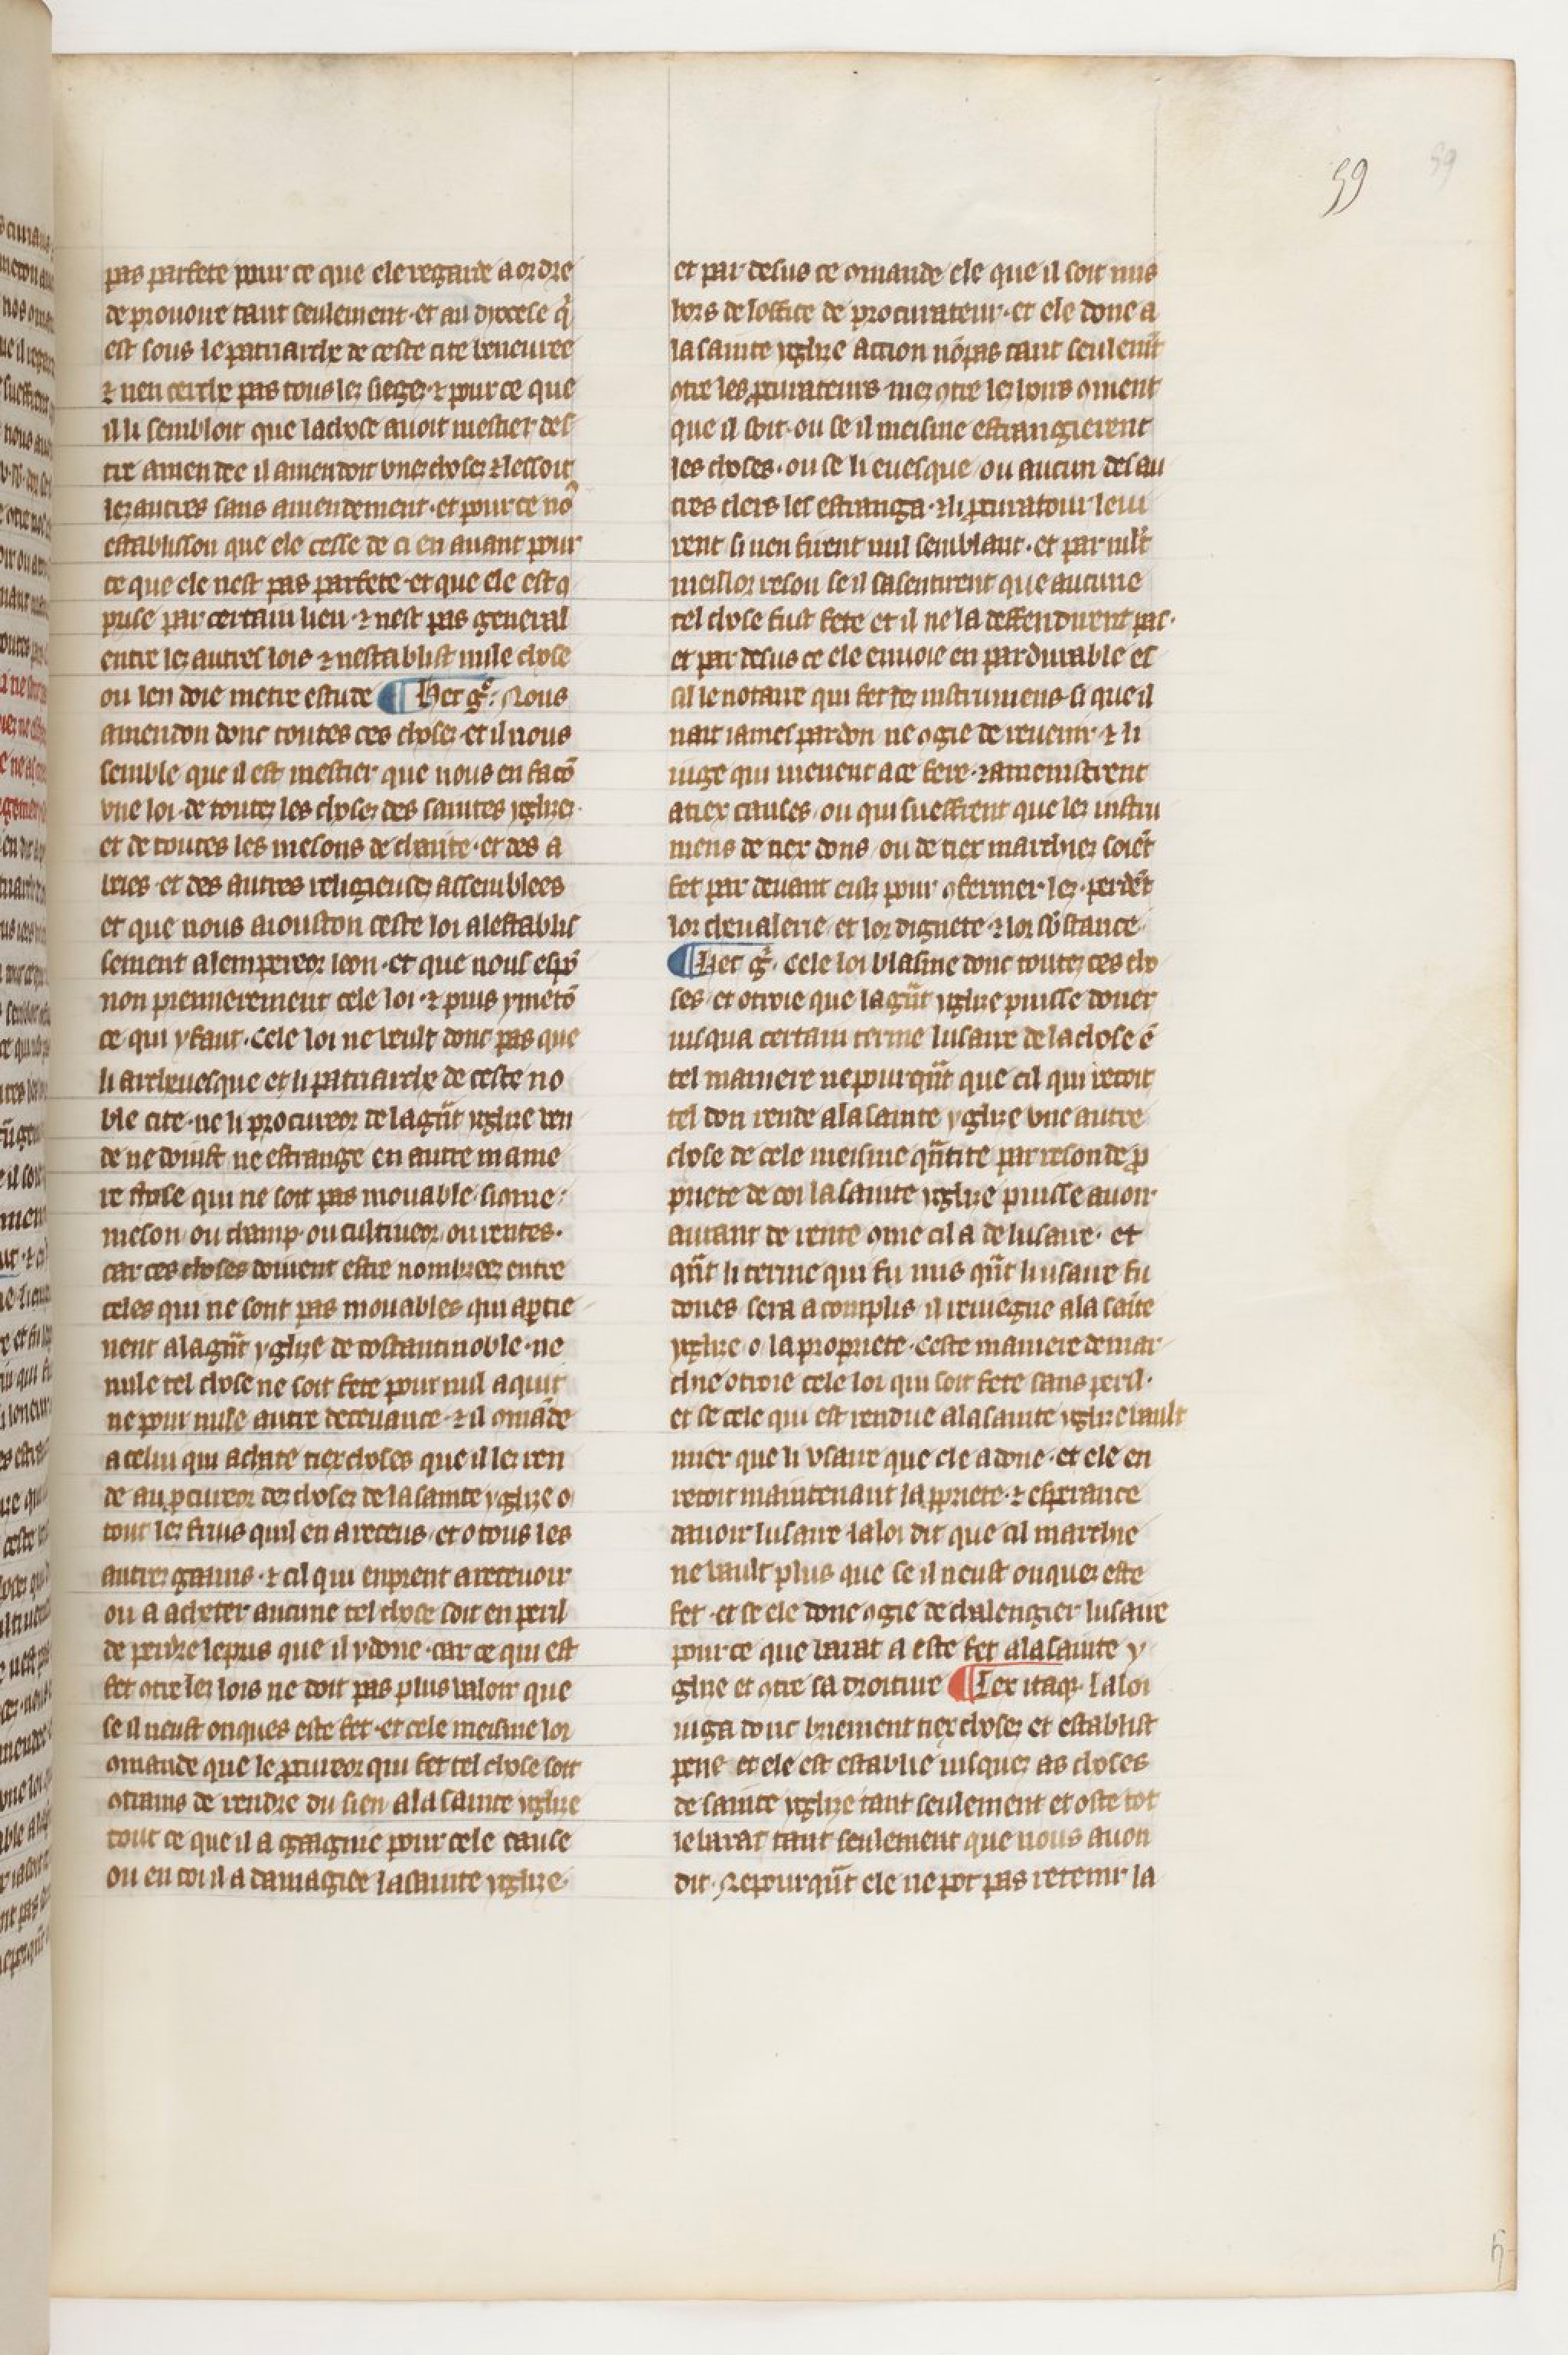 59
59
pas parfete pour ce que ele regarde a ordre
de prouoire tant seulement · et au dyocese q̃
est sous le patriarche de ceste cite beneuree
⁊ nen cerche pas tous lez siegez · ⁊ pour ce que
il li sembloit que la chose auoit mestier des
tre amendee il amendoit vnez chosez ⁊ lessoit
lez autres sans amendement · et pour ce no᷑
establisson que ele cesse de ci en auant pour
ce que ele nest pas parfete · et que ele est ꝯ
prise par certain lieu · ⁊ nest pas general
entre lez autres lois ⁊ nestablist nule chose
ou len doie metre estude ¶ Hec g̊ · Nous
amendon donc toutes ces chosez · et il nous
semble que il est mestier que nous en facõ
vne loi · de toutez les chosez des saintes yglisez ·
et de toutes les mesons de charite · et des a
bries · et des autres religieusez assemblees
et que nous aiouston ceste loi a lestablis
sement a lempereor leon · et que nous espõ
non premierement cele loi · ⁊ puis y metõ
ce qui y faut · Cele loi ne veult donc pas que
li archeuesque et li patriarche de ceste no
ble cite · ne li procureor de la gñt yglise ven
de ne doinst ne estrange en autre manie
re chose qui ne soit pas mouable · sicome ·
meson · ou champ · ou cultiueor · ou rentes ·
car ces choses doiuent estre nombreez entre
celes qui ne sont pas mouables qui aptie
nent a la gñt yglise de costantinoble · ne
nule tel chose ne soit fete pour nul aquit
ne pour nule autre deceuance · ⁊ il ꝯmãde
a celui qui achate tiex choses que il lez ren
de au ꝓcureor dez chosez de la sainte yglise o
tout lez fruis quil en a receus · et o tous les
autrez gaains · ⁊ cil qui enprent a receuoir
ou a acheter aucune tel chose soit en peril
de perdre le pris que il y done · car ce qui est
fet ꝯtre lez lois ne doit pas plus valoir que
se il neust onques este fet · et cele meisme loi
ꝯmande que le ꝓcureor qui fet tel chose soit
ꝯtrains de rendre du sien a la sainte yglise
tout ce que il a gaignie pour cele cause
ou en coi il a damagiee la sainte yglise ·
et par desus ce ꝯmande ele que il soit mis
hors de loffice de procurateur · et ele done a
la sainte yglise action nõ pas tant seulem̃t
ꝯtre les ꝓcurateurs · mez ꝯtre lez hoirs ꝯment
que il soit · ou se il meisme estrangierent
les choses · ou se li euesque · ou aucun des au
tres clers les estranga · ⁊ li ꝓcuratour le vi
rent si nen firent nul semblant · et par mlt̃
meillor reson se il sasentirent que aucune
tel chose fust fete et il ne la deffendirent pas ·
et par desus ce ele enuoie en pardurable es
cil le notaire qui fet tez instrumens · si que il
nait iames pardon ne ꝯgie de reuenir · ⁊ li
iuge qui vienent a ce fere · ⁊ amenistrent
a tiex causes · ou qui sueffrent que lez instru
mens de tiex dons · ou de tiex marchiez soiẽt
fet par deuant eulz pour ꝯfermer lez · perdẽt
lor cheualerie · et lor dignete · ⁊ lor sb̃stance ·
¶ Hec g̊ · Cele loi blasme donc toutez ces cho
ses · et otroie que la gñt yglise puisse doner
iusqua certain terme lusaire de la chose ẽ
tel maniere nepourqñt que cil qui recoit
tel don rende a la sainte yglise vne autre
chose de cele meisme qñtite par reson de ꝓ
priete de coi la sainte yglise puisse auoir
autant de rente ꝯme cil a de lusaire · et
qñt li terme qui fu mis qñt li usaire fu
dones sera acomplis · il reuiegne a la saĩte
yglise · o la propriete · Ceste maniere de mar
chie otroie cele loi qui soit fete sans peril ·
et se cele qui est rendue a la sainte yglise vault
miex que li vsaire que ele a done · et ele en
recoit maintenant la ꝓpriete · ⁊ esperance
dauoir lusaire · la loi dit que cil marchie
ne vault plus que se il neust onquez este
fet · et se ele done ꝯgie de chalengier lusaire
pour ce que barat a este fet a la sainte y
glise et ꝯtre sa droiture ¶ Lex itaqꝫ · La loi
iuga donc briement tiex chosez et establist
pene · et ele est establie iusquez as choses
de sainte yglise tant seulement et oste tot
le barat tant seulement que nous auon
dit · Nepourqñt ele ne pot pas retenir la